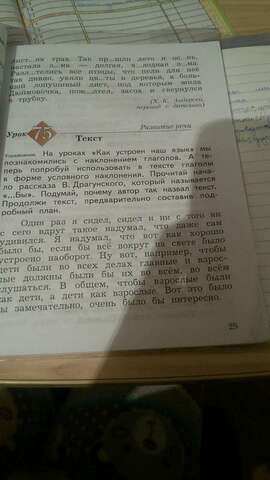 лист..ях трав. Так пр..шли дето и ос..нь.
настала з..ма — долгая, х..лодная з..ма.
Разл..телись все птицы, что пели для неё
так дивно, увяли цв..ты и деревья, а боль-
шой лопушиный лист, под которым жила
Дюймовочка, пож..лтел, засох и свернулся
в трубку.
(Х. К. Андерсен,
перевод с датского)
Урок 75 Развитие речи
Текст
Упражнение. На уроках «Как устроен наш язык» мы
познакомились с наклонением глаголов. А те-
перь попробуй использовать в тексте глаголы
в форме условного наклонения. Прочитай нача-
ло рассказа В. Драгунского, который называется
«...Бы». Подумай, почему автор так назвал текст.
Продолжи текст, предварительно составив под-
робный план.
Один раз я сидел, сидел и ни с того ни
с сего вдруг такое надумал, что даже сам
удивился. Я надумал, что вот как хорошо
было бы, если бы всё вокруг на свете было
устроено наоборот. Ну вот, например, чтобы
дети были во всех делах главные и взрос-
лые должны были бы их во всём, во всём
слушаться. В общем, чтобы взрослые были
как дети, а дети как взрослые. Вот это было
бы замечательно, очень было бы интересно.
25